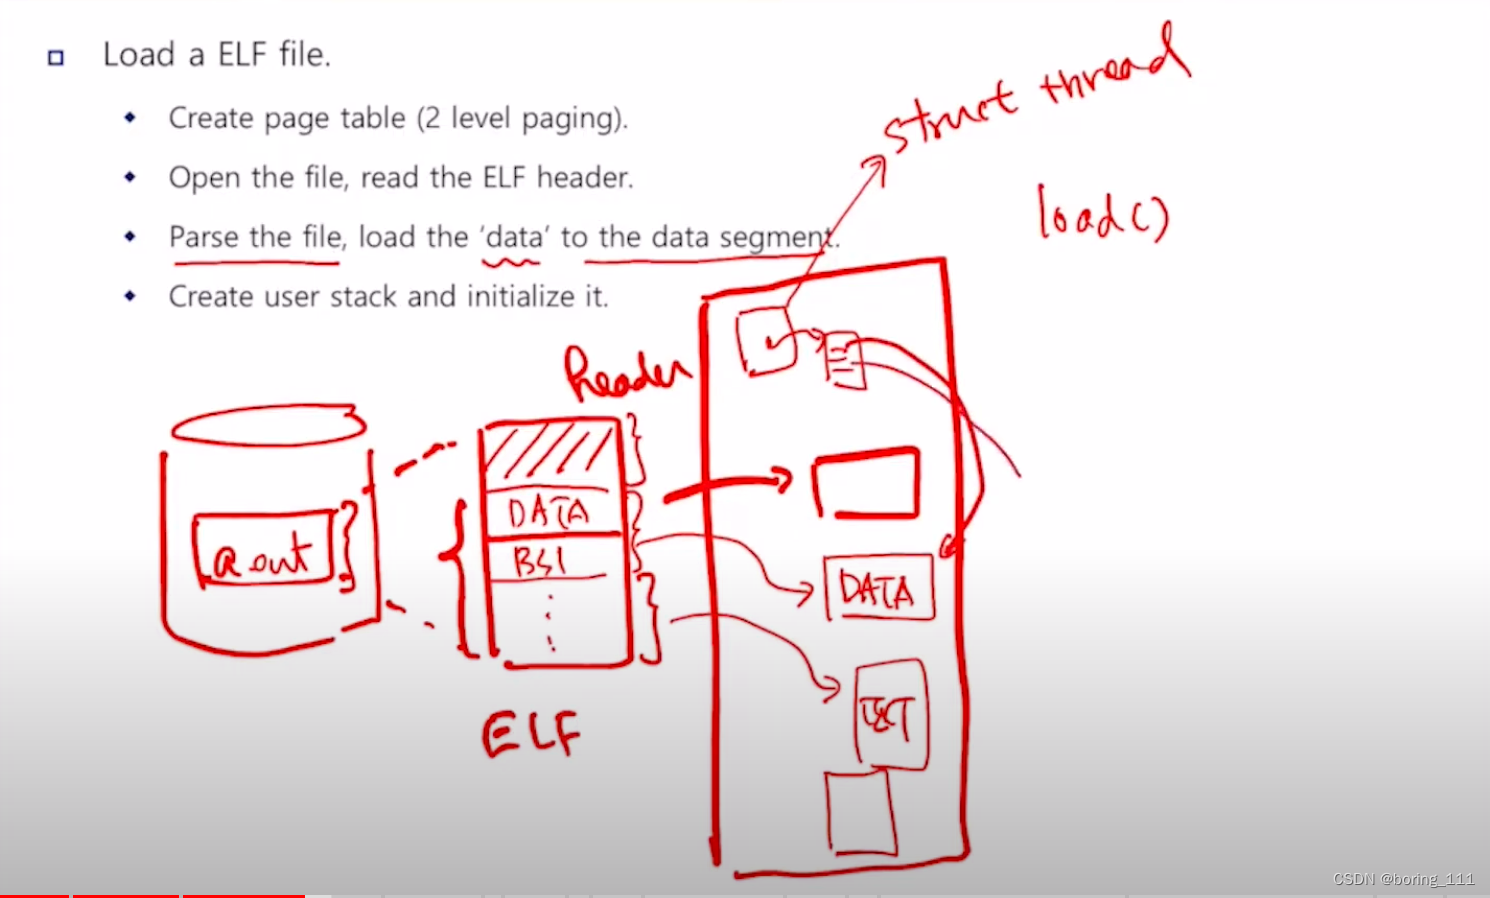 Load a ELF file.
Create page table (2 level paging).
Open the file, read the ELF header.
Parse the file, load the 'data' to the data segment.
Create user stack and initialize it.
struct thread
load()
header
DATA
BSS
a.out
DATA
TEXT
ELF
CSDN @boring_111